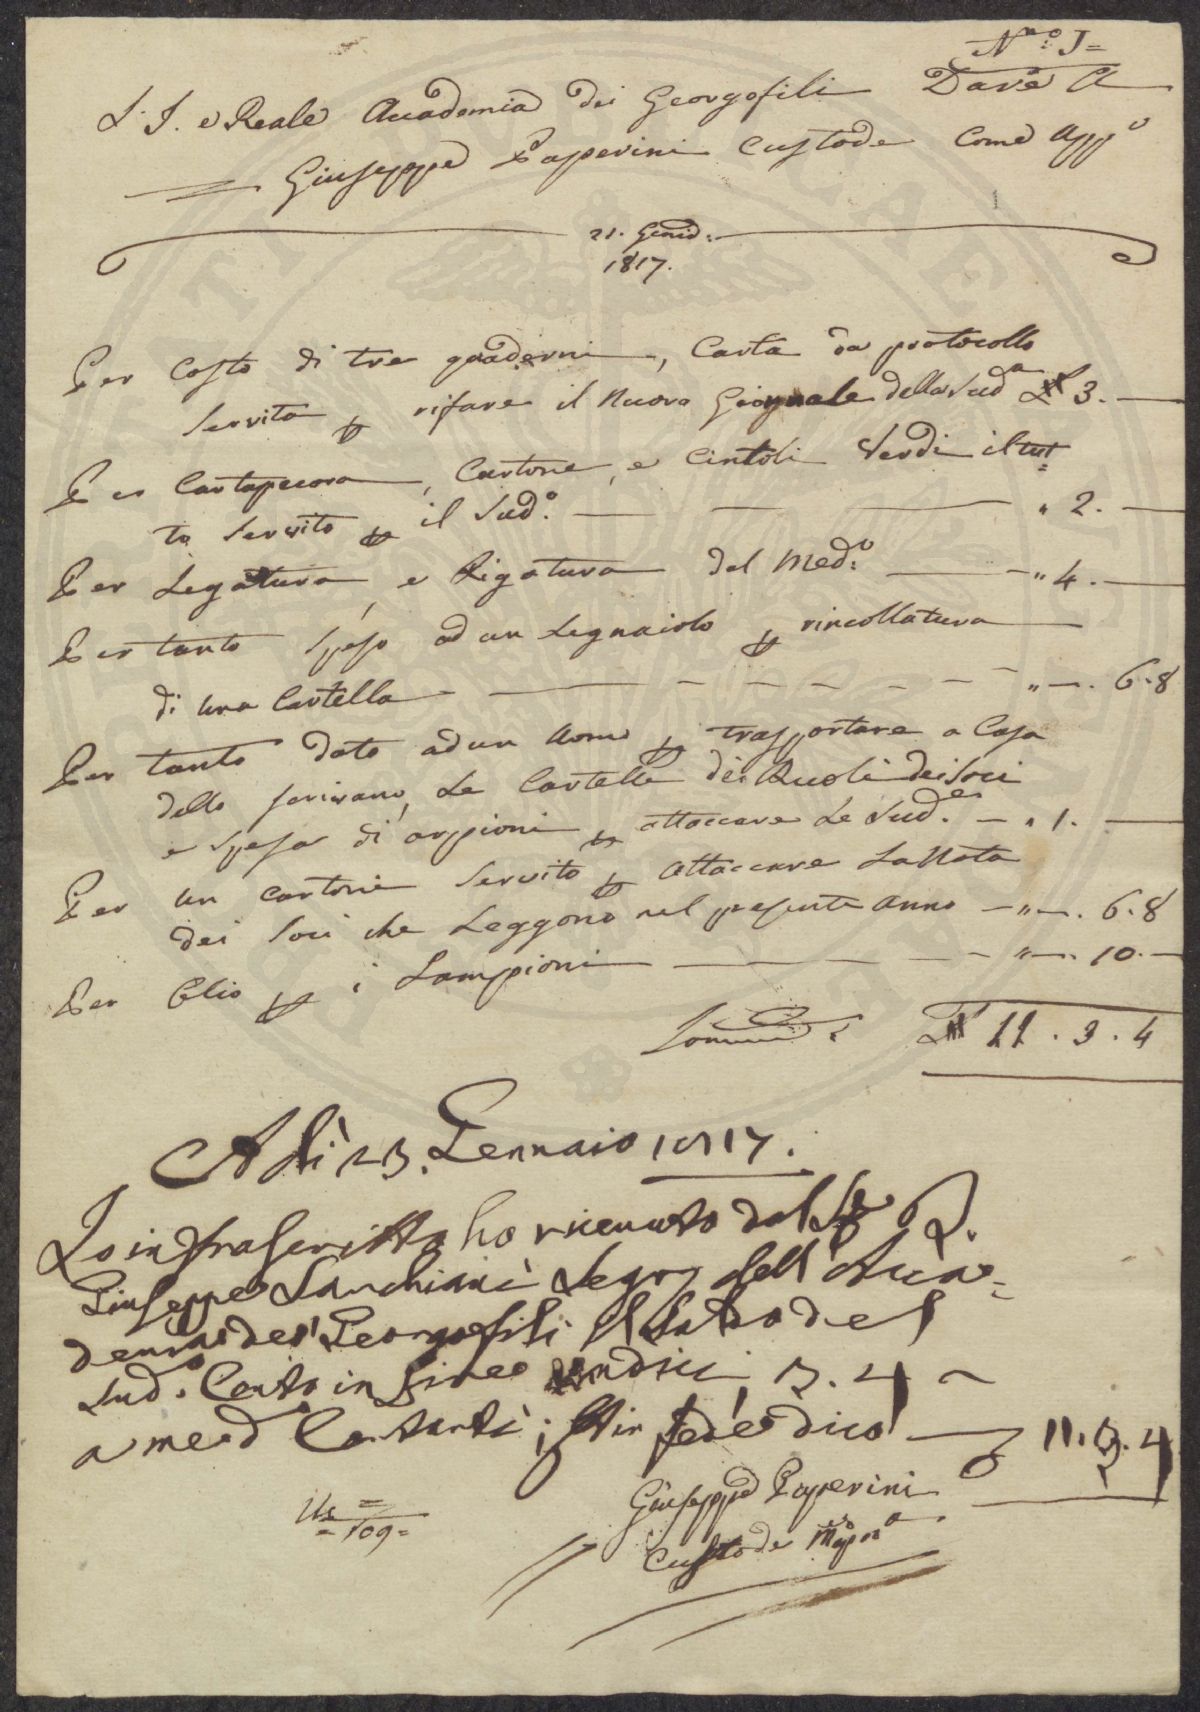 N.ro I=
L' I. e Reale Accademia dei Georgofili Dare A
Giuseppe Paperini Custode Come App.o
21. Genn.o
1817.
Per Costo di tre quaderni, Carta da protocollo
servita p rifare il nuovo Giornale della Sud.a £ 3. —
Per Cartapecora, Cartone, e Cintoli Verdi il tut=
to servito p il Sud.o — " 2. —
Per Legatura, e Rigatura del Med.o — " 4. —
Per tanto speso ad un Legnaiolo p rincollatura
di una Cartella — " —. 6. 8
Per tanto dato ad un Uomo p trasportare a Casa
dello scrivano, Le Cartelle dei Ruoli dei Soci
e spesa di arpioni p attaccare Le Sud.e — " 1. —
Per un cartone servito p attaccare La Nota
dei Soci che Leggono nel presente anno — " —. 6. 8
Per Olio p i Lampioni — " —. 10. —
Somma £ 11. 3. 4
A dì 23. Gennaio 1817.
Io infrascritto ho ricevuto dal Sig.e D.
Giuseppe Sarchiani Segr.o dell' Acca=
demia dei Georgofili il Saldo del
Sud.o Conto in Lire undici, 3. 4
a med.o Contanti; et in fede dico — £ 11. 3. 4
Giuseppe Paperini
Custode Mpp.a
109=